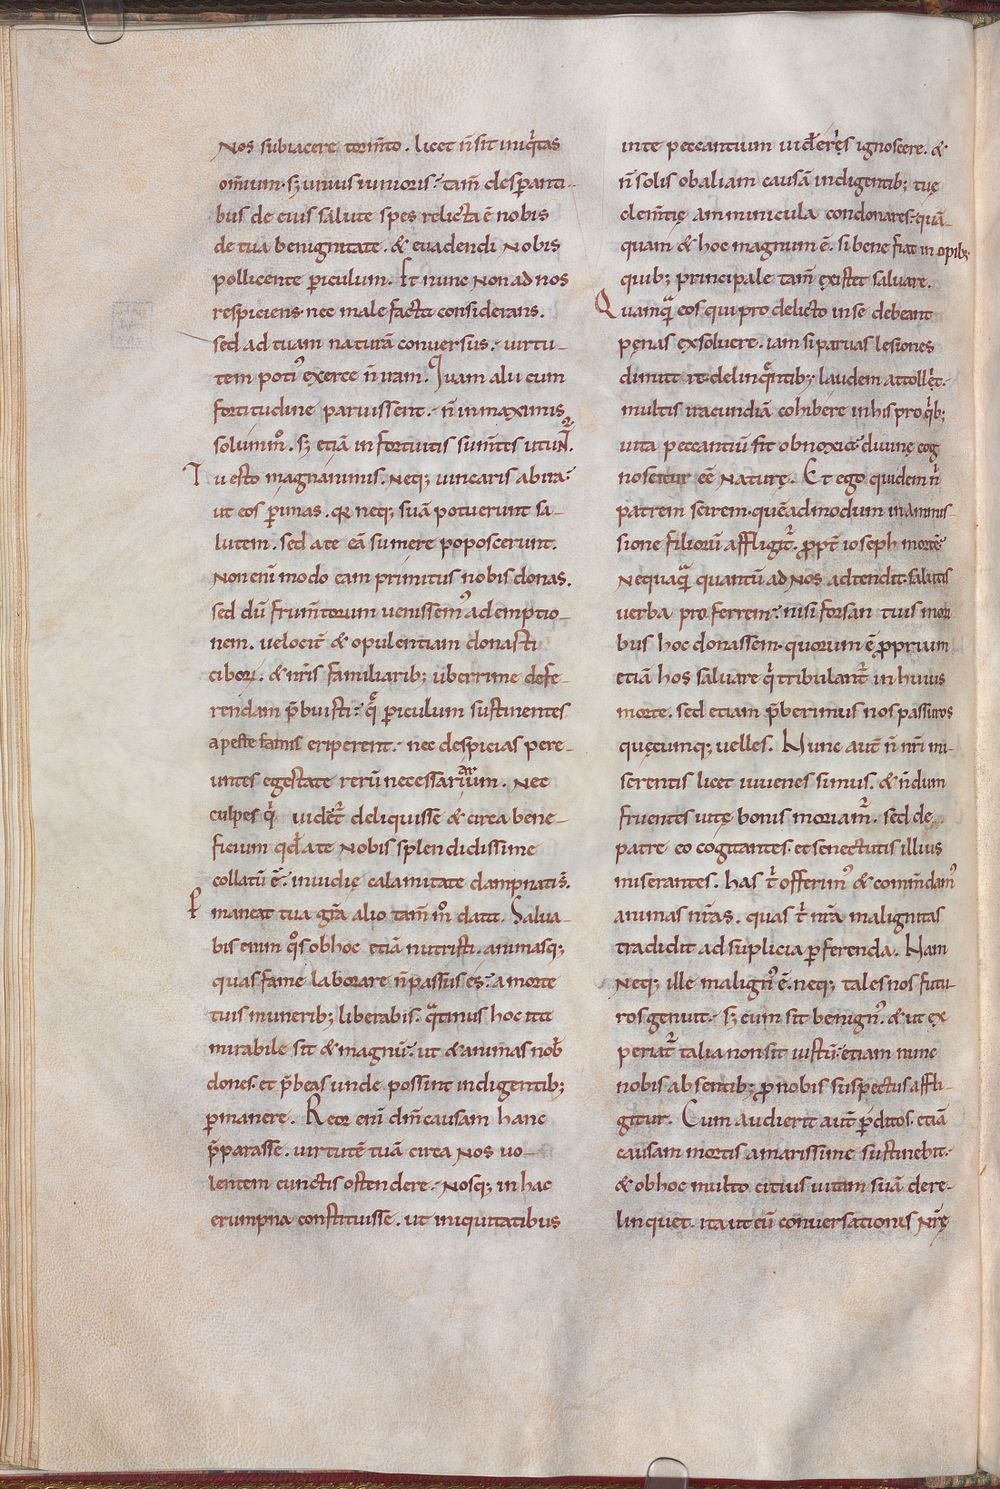 Nos subiacere torm̅to. licet n̅ sit iniq̍tas
om̅ium. sꝫ unius iunioris. tam̅ desꝑanti-
bus de eius salute spes relicta e̅ nobis
de tua benignitate. & euadendi Nobis
pollicente ꝑiculum. Et nunc Non ad nos
respiciens. nec male facta considerans.
sed ad tuam naturā conuersus. uirtu-
tem poti᾿ exerce n̅ iram. Quam alii cum
fortitudine paruissent. n̅ in maximis
solum̊. sꝫ etiā in fortuitis sum̅tes utunt̃.
Tu esto magnanimis. Neq; uincaris ab ira.
ut eos ꝑimas. q̅ neq; suā potuerunt sa-
lutem. sed a te eā sumere poposcerunt.
Non eni̅ modo eam primitus nobis donas.
sed du̅ frum̅torum uenissem᾿ ad emptio-
nem. uelocit̅ & opulentiam donasti
cibori̅. & nr̅is familiarib; uberrime defe-
rendam p̅buisti. q̊ ꝑiculum sustinentes
a peste famis eriperent. nec despicias pere-
untes egestate reru̅ necessariarum. Nec
culpes q̍ uidet̃ deliquisse & circa bene-
ficium qd̅ a te Nobis splendidissime
collatu̅ e̅. inuidię calamitate dampnatis̃.
Pmaneat tua gr̅a alio tam̅ m̊ data. Salua-
bis enim q̊s ob hoc etiā nutristi. animasq;
quas fame laborare n̅ passus es. a morte
tuis munerib; liberabis. q̅tinus hoc ita
mirabile sit & magnu̅. ut & animas nob̅
dones. et p̅beas unde possint indigentib;
ꝑmanere. Reor eni̅ dm̅ causam hanc
p̅parasse. uirtute̅ tuā circa Nos uo-
lentem cunctis ostendere. Nosq; in hac
erumpna constituisse. ut iniquitatibus
in te peccantium uidereris ignoscere. &
n̅ solis ob aliam causā indigentib; tuę
clem̅tię amminicula condonares. quā-
quam & hoc magnum e̅. si bene fiat in opib;
quib; principale tam̅ existit saluare.
Quamq̅ eos qui pro delicto in se debeant
pęnas exsoluere. iam si paruas lesiones
dimitt̃ te delinq̅ntib; laudem attollet̃.
multis iracundiā cohibere in his pro q̍b;
uita peccantiu̅ fit obnoxia. diuinę cog
noscitur ee̅ Naturę. Et ego quidem n̍
patrem scirem. que̅admodum in amis-
sione filioru̅ affligit̃. ꝓpt̃ ioseph morte̅
Nequaq̅ quantu̅ ad Nos adtendit. salutis
uerba pro ferrem. nisi forsan tuis mori
bus hoc donassem. quorum e̅ ꝓprium
etiā hos saluare q̍ tribulant̃ in huius
morte. sed etiam p̅berimus nos passuros
quęcumq; uelles. Nunc aut̅ n̅ nr̅i mi-
serentis licet iuuenes simus. & n̅dum
fruentes uitę bonis moriam̃. sed de
patre eo cogitantes. et senectutis illius
miserantes. has t̍ offerim᾿ & com̅ndam᾿
animas nr̅as. quas t̍ nr̅a malignitas
tradidit ad suplicia ꝑferenda. Nam
Neq; ille malign᾿ e̅. neq; tales nos futu
ros genuit. sꝫ cum sit benign᾿. & ut ex
periat̃ talia non sit iustu̅. etiam nunc
nobis absentib; ꝓ nobis suspectus affli-
gitur. Cum audierit aut̅ ꝑditos. etiā
causam mortis amarissime sustinebit.
& ob hoc multo citius uitam suā dere-
linquet. ita ut eu̅ conuersationis Nr̅ę